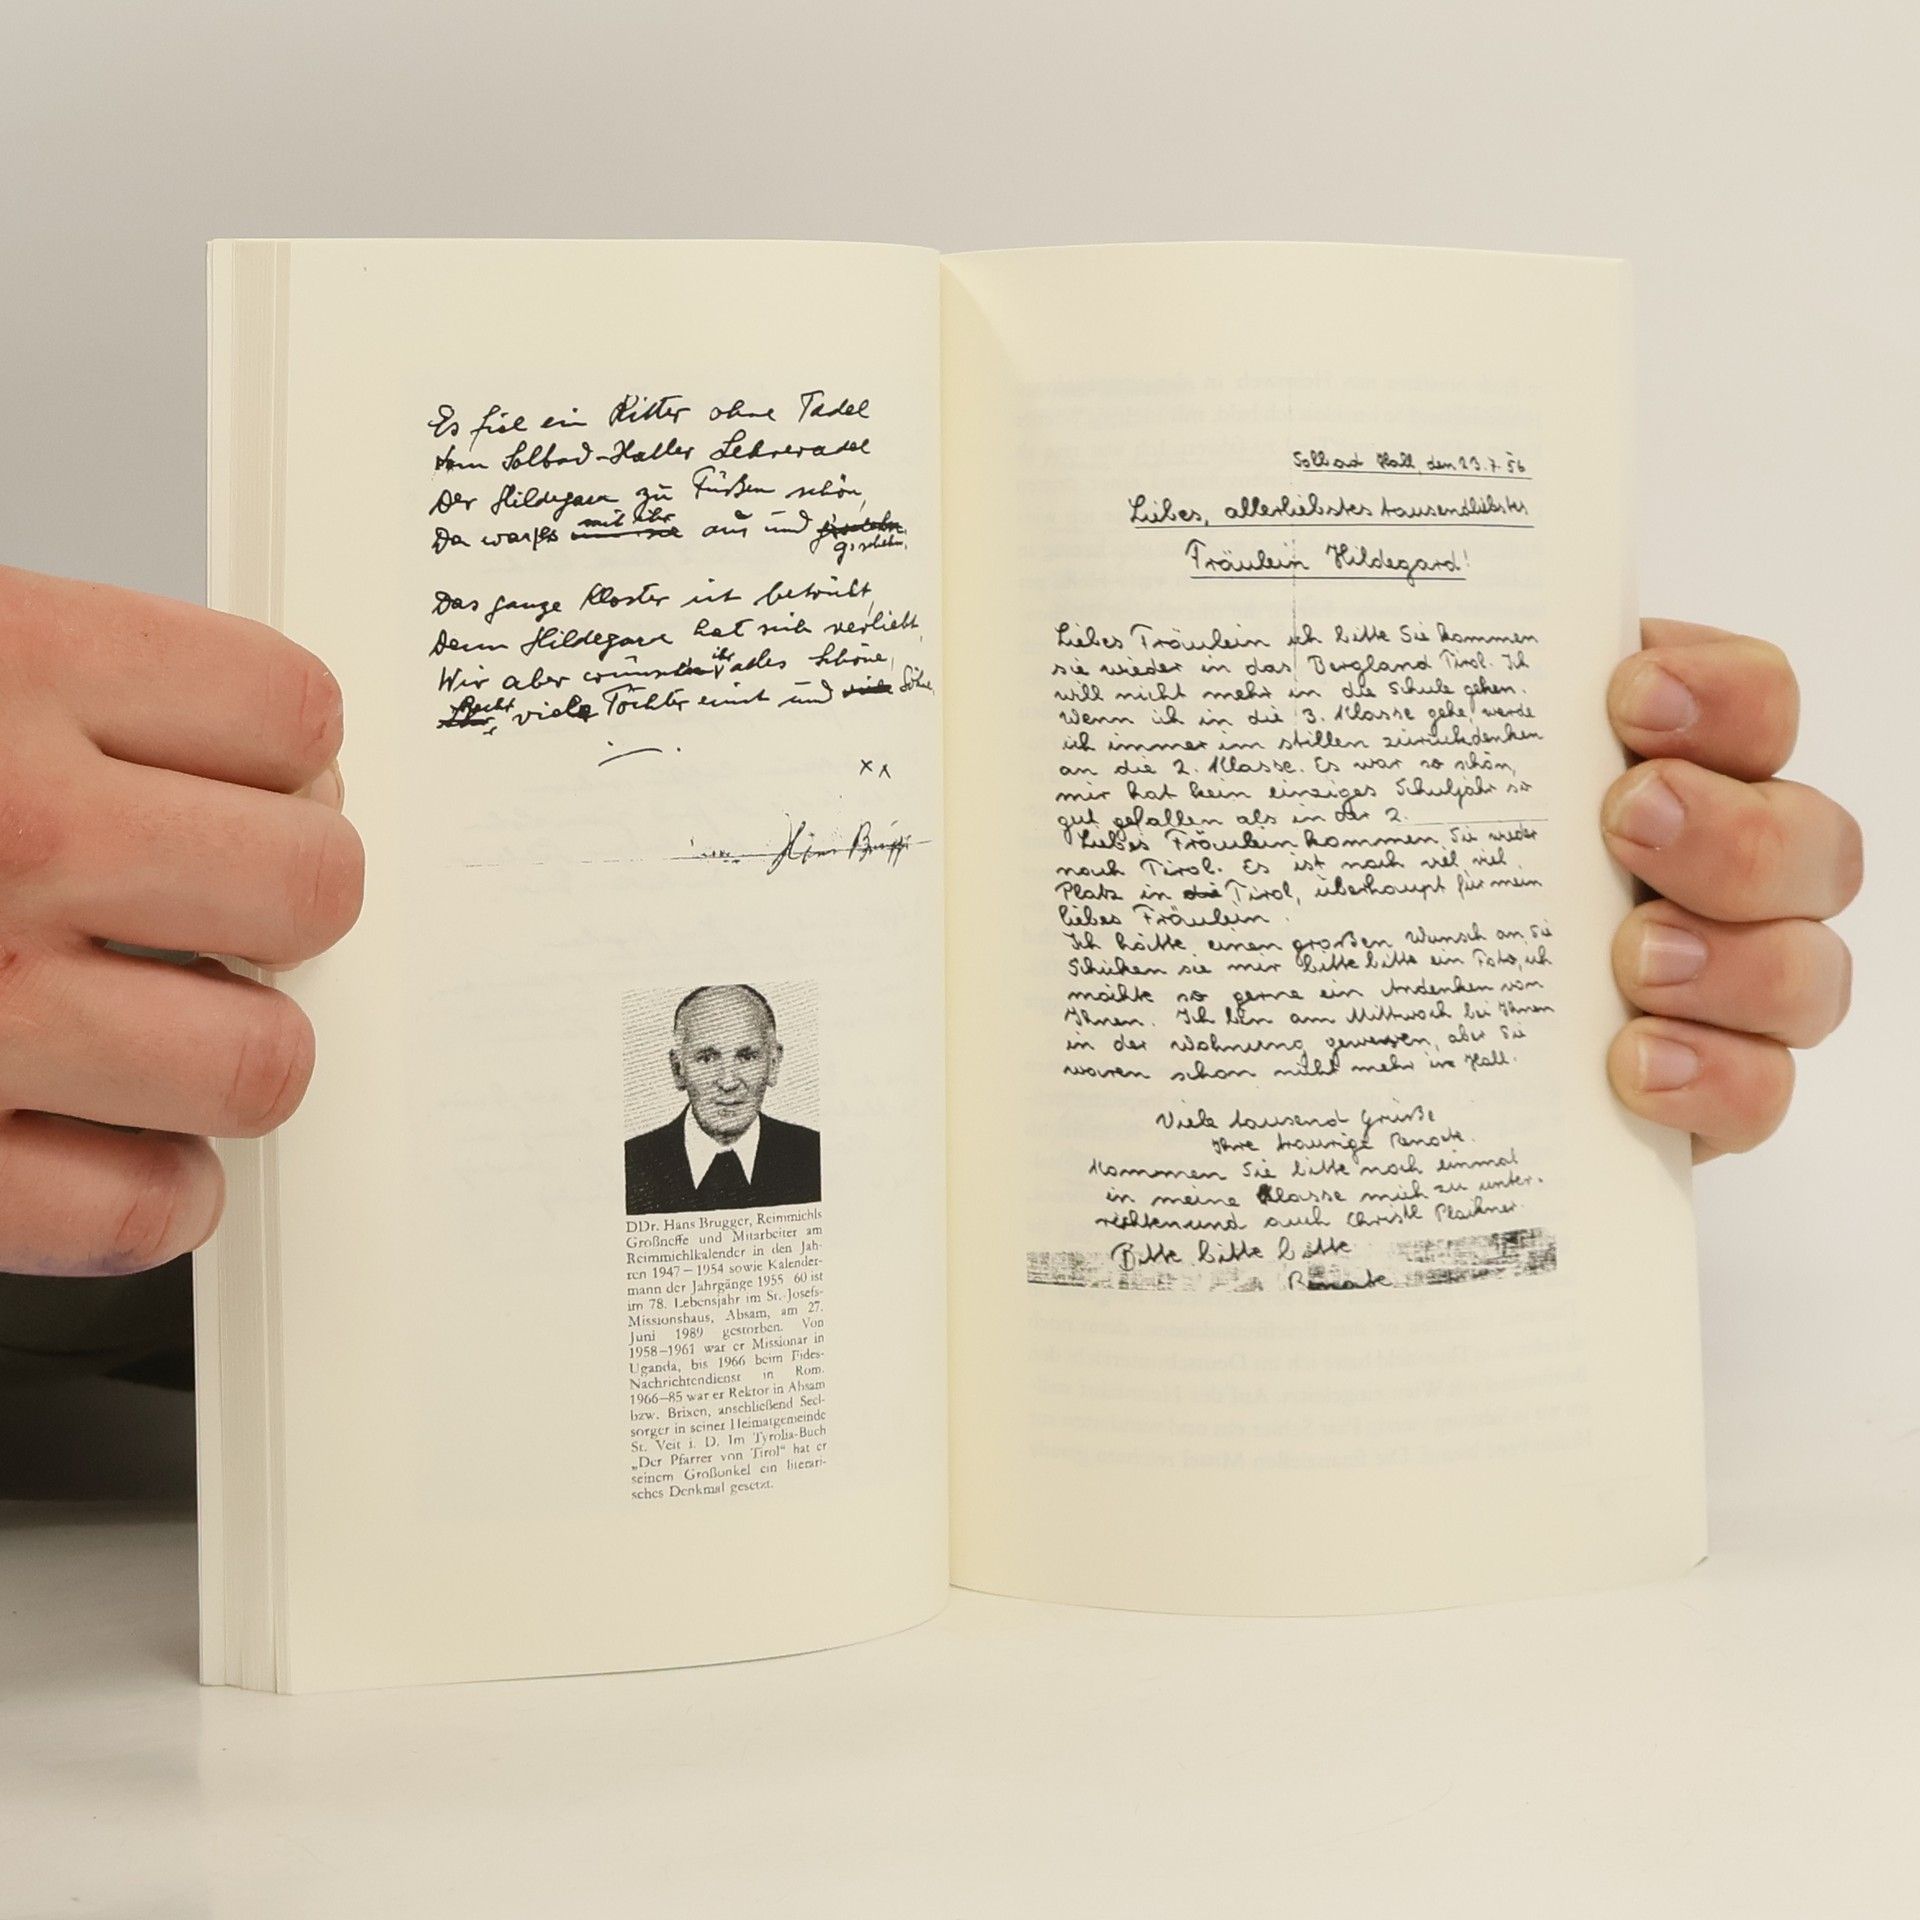 Es fiel ein Ritter ohne Tadel
Vom Solbad-Haller Lehreradel
Der Hildegard zu Füßen schön,
Da war's mit ihr aus und geschehn.
Das ganze Kloster ist betrübt,
Denn Hildegard hat sich verliebt,
Wir aber wünschen ihr alles Schöne,
Recht viele Töchter einst und Söhne.
xx
Hans
DDr. Hans Brugger, Reimmichls
Großneffe und Mitarbeiter am
Reimmichlkalender in den Jah-
ren 1947–1954 sowie Kalender-
mann der Jahrgänge 1955 60 ist
im 78. Lebensjahr im St. Josefs-
Missionshaus, Absam, am 27.
Juni 1989 gestorben. Von
1958–1961 war er Missionar in
Uganda, bis 1966 beim Fides-
Nachrichtendienst in Rom.
1966–85 war er Rektor in Absam
bzw. Brixen, anschließend Seel-
sorger in seiner Heimatgemeinde
St. Veit i. D. Im Tyrolia-Buch
„Der Pfarrer von Tirol“ hat er
seinem Großonkel ein literari-
sches Denkmal gesetzt.
Solbad Hall, den 23.7.56
Liebes, allerliebstes tausendliebstes
Fräulein Hildegard!
Liebes Fräulein ich bitte Sie kommen
sie wieder in das Bergland Tirol. Ich
will nicht mehr in die Schule gehen.
Wenn ich in die 3. Klasse gehe, werde
ich immer im stillen zurückdenken
an die 2. Klasse. Es war so schön,
mir hat kein einziges Schuljahr so
gut gefallen als in der 2.
Liebes Fräulein kommen Sie wieder
nach Tirol. Es ist noch viel viel
Platz in die Tirol, überhaupt für mein
liebes Fräulein.
Ich hätte einen großen Wunsch an Sie
Schicken sie mir bitte bitte ein Foto, ich
möchte so gerne ein Andenken von
Ihnen. Ich bin am Mittwoch bei Ihnen
in der Wohnung gewesen, aber Sie
waren schon nicht mehr in Hall.
Viele tausend Grüße
Ihre traurige Renate.
Kommen Sie bitte noch einmal
in meine Klasse mich zu unter-
richten und auch Christl Plaikner.
Bitte bitte bitte
Renate